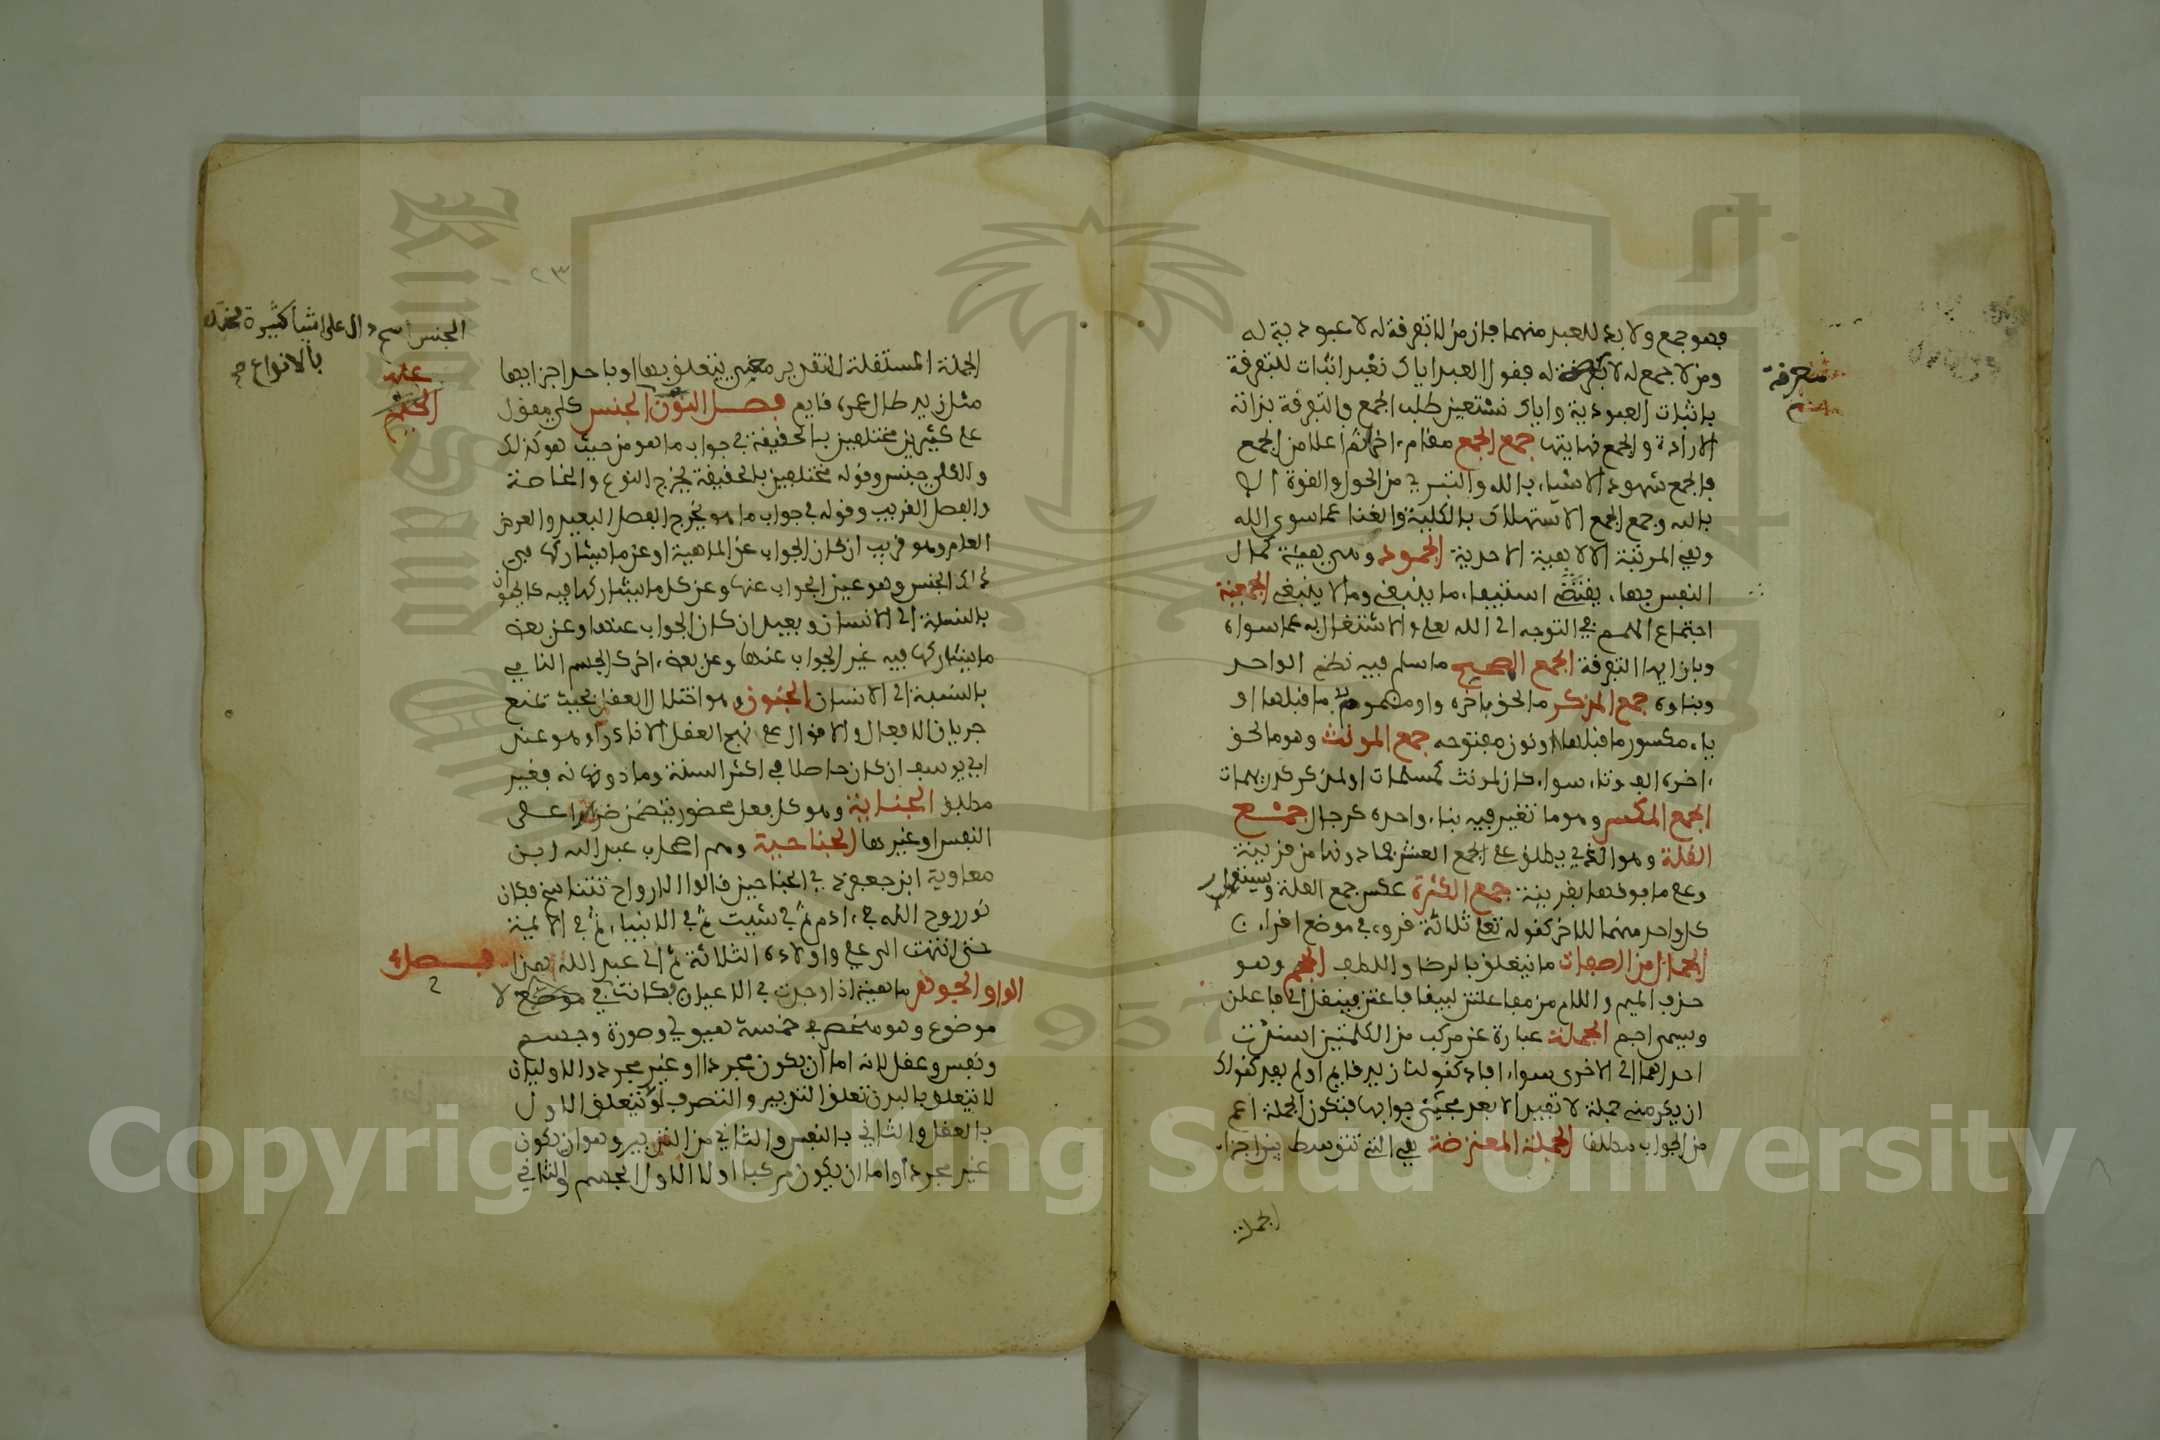 فهو جمع ولا بد للعبد منهما فان من لا تفرقة له لا عبودية له
ومن لا جمع له لا معرفة له فقول العبد اياك نعبد اثبات للتفرقة
معرفة
باثبات العبودية واياك نستعين طلب الجمع والتفرقة بداية
الارادة والجمع نهايتها جمع الجمع مقام اخر اتم اعلا من الجمع
فالجمع شهود الاشياء بالله والتبري من الحول والقوة الا
بالله وجمع الجمع الاستهلاك بالكلية والفنا عما سوى الله
وهي المرتبة الالاهية الاحدية الجمود وهي هيئة كمال
النفس بها يقتصر استيفاء ما ينبغي وما لا ينبغي الجمعية
اجتماع الهمم في التوجه الى الله تعلى والاشتغال به عما سواه
وبازايها التفرقة الجمع الصحيح ما سلم فيه نظم الواحد
وبناوه جمع المذكر ما لحق باخره واو مضموم ما قبلها او
ياء مكسور ما قبلها ونون مفتوحه جمع المونث وهو ما لحق
اخره الف وتاء سواء كان لمونث كمسلمات او لمذكر كدريهمات
الجمع المكسر وهو ما تغير فيه بناء واحده كرجال جمع
القلة وهو الذي يطلق على الجمع العشرة فما دونها من قرينة
وعلى ما فوقها بقرينة جمع الكثرة عكس جمع القلة ويستعار
كل واحد منهما للاخر كقوله تعلى ثلاثة قروء في موضع اقراء
الجمال من الصفات ما يتعلق بالرضا واللطف الجمم وهو
حذف الميم واللام من مفاعلتن ليبقا فاعتن فينقل الى فاعلن
ويسمى اجم الجملة عبارة عن مركب من الكلمتين اسندت
احداهما الى الاخرى سواء افاد كقولنا زيد قايم او لم يفد كقولك
ان يكرمني جملة لا تفيد الا بعد مجيئ جوابها فتكون الجملة اعم
من الجواب مطلقا الجملة المعترضة هي التي تتوسط بين اجزاء
الجملة
٢٣
الجنس اسم دال على اشيأ كثيرة مختلفة
بالانواع
الجملة المستقلة لتقرير معنى يتعلق بها او باحد اجزايها
مثل زيد طال عمره قايم فصل النون الجنس كلي مقول
على كثيرين مختلفين بالحقيقة في جواب ما هو من حيث هو كذلك
والكلي جنس وقوله مختلفين بالحقيقة يخرج النوع والخاصة
والفصل القريب وقوله في جواب ما هو يخرج الفصل البعيد والعرض
العام وهو قريب ان كان الجواب عن الماهية او عن ما يشاركها في
ذلك الجنس وهو عين الجواب عنها وعن كل ما يشاركها فيه كالحيوان
بالنسبة الى الانسان وبعيد ان كان الجواب عنها وعن بعض
ما يشاركها فيه غير الجواب عنها وعن بعض اخر كالجسم النامي
بالنسبة الى الانسان الجنون وهو اختلال العقل بحيث تمنع
جريان الافعال والاقوال على نهج العقل الا نادرا وهو عند
ابي يوسف ان كان حاصلا في اكثر السنة وما دونه فغير
مطبق الجناية وهو كل فعل محضور يتضمن ضررا على
النفس او غيرها الجناحية وهم اصحاب عبد الله ابن
معاوية ابن جعفر ذي الجناحين قالوا الارواح تتناسخ فكان
نور روح الله في ادم ثم في شيت ثم في الانبياء ثم في الايمة
حتى انتهت الى علي واولاده الثلاثة ثم الى عبد الله هذا فصل
الواو الجوهر ماهية اذا وجدت في الاعيان فكانت في موضع لا
موضوع وهو منحصر في خمسة هيولي وصورة وجسم
ونفس وعقل لانه اما ان يكون مجردا او غير مجرد والاول اما ان
لا يتعلق بالبدن تعلق التدبير والتصرف او يتعلق الاول
بالعقل والثاني بالنفس والثاني من الترديد وهو ان يكون
غير مجرد اما ان يكون مركبا او لا الاول الجسم والثاني